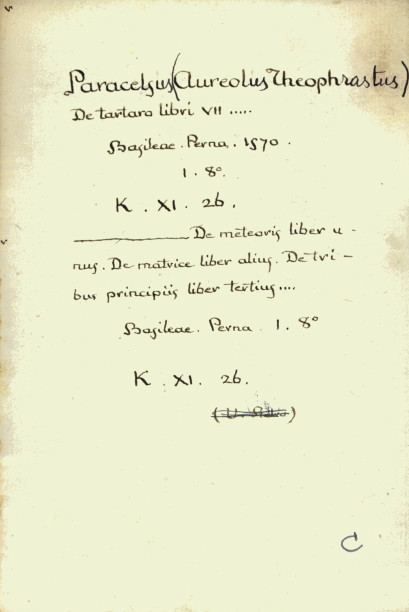 Paracelsus (Aureolus Theophrastus)
De tartaro libri VII .....
Basileae . Perna . 1570 .
1 . 8º.
K . XI . 26 .
________ De meteoris liber u -
nus. De matrice liber alius. De tri -
bus principiis liber tertius ....
Basileae . Perna . 1 . 8º
K . XI . 26 .
C